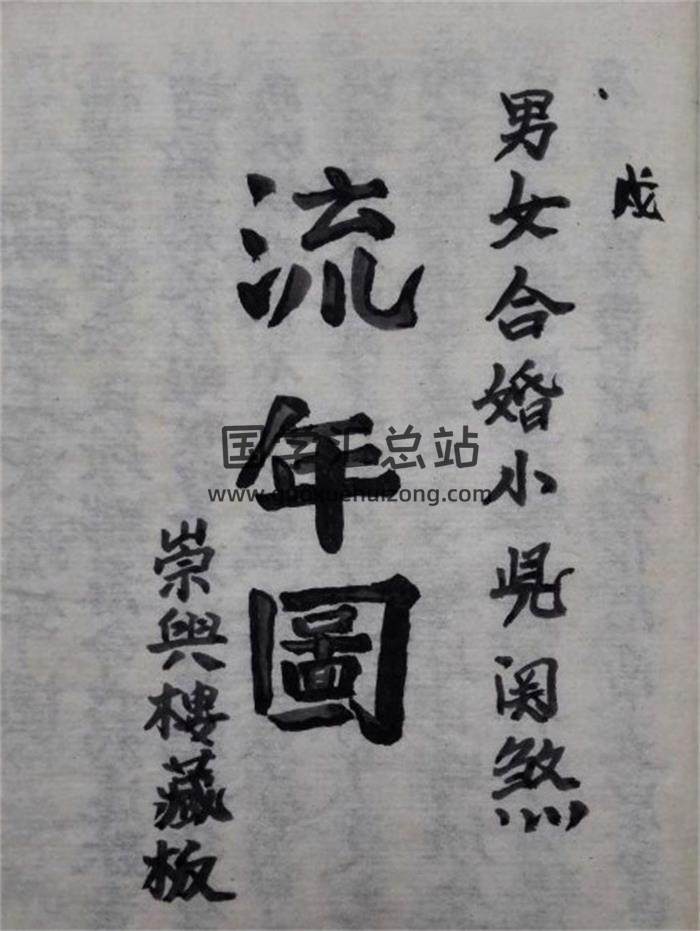 男女合婚小兒関煞
流年圖
崇興樓藏板
国学汇总站
www.guoxuehuizong.com